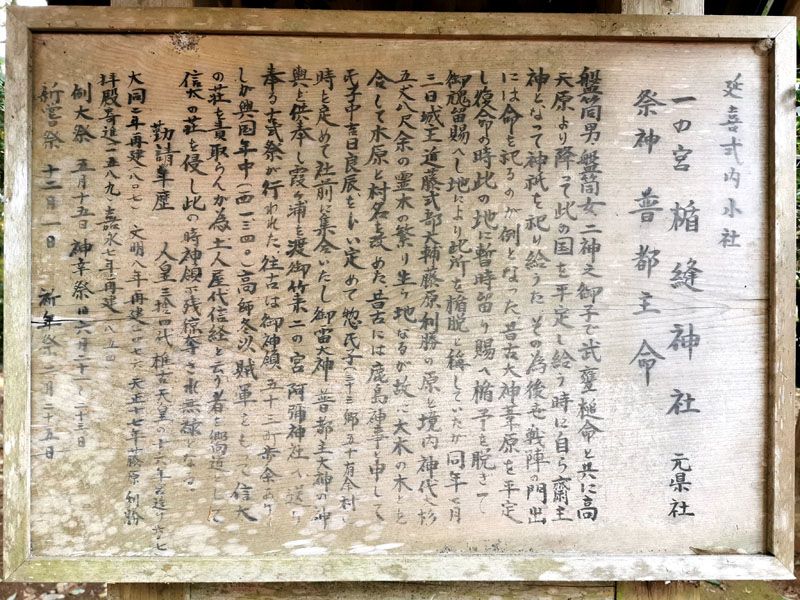 延喜式内小社
一の宮 楯縫神社 元県社
祭神 普都主命
盤筒男盤筒女二神之御子で武甕槌命と共に高
天原より降って此の国を平定し給う時に自ら齋主
神となって神祇を祀り給うた その為後世戦陣の門出
には命を祀るのが例となった 昔古大神葦原を平定
し復命の時此の地に暫時留り賜へ楯予を脱ぎ
御魄留賜へし地により此所を楯脱と稱していたが同年七月
三日城主近藤式部大輔藤原利勝の原と境内神代、杉
五丈八尺余の霊木の繁り生ケ地なるが故に大木の木とを
合して木原と村名を改めた 昔古には鹿島神幸と申して
氏子中吉日良辰をトい定めて惣氏子(三十三郷五十有余村)
時を定めて社前に集合いたし御宙大神(普都主大神の神
輿を供奉し霞ヶ浦を渡御竹来二の宮阿彌神社へ送り
奉る古式祭が行われた 往古は御神領五十三町歩余あり
しが興国年中(一三四〇)高師冬以賊軍をもって信太
の荘を責取らんが為 土人屋代信経と云う者を郷導として
信太の荘を侵し此の時神領不残掠奪され無禄となる。
勤請年歴 人皇三拾四代推古天皇の十六年古造り六〇七
大同二年再建(八〇七) 文明八年再建(一四七六) 天正十七年藤原利勝
拝殿寄進(一五八九) 嘉永七年再建(一八五四
例大祭 五月十五日 神幸祭 日六月二十一〜二十三日
新嘗祭 十二月一日 祈年祭 二月二十五日